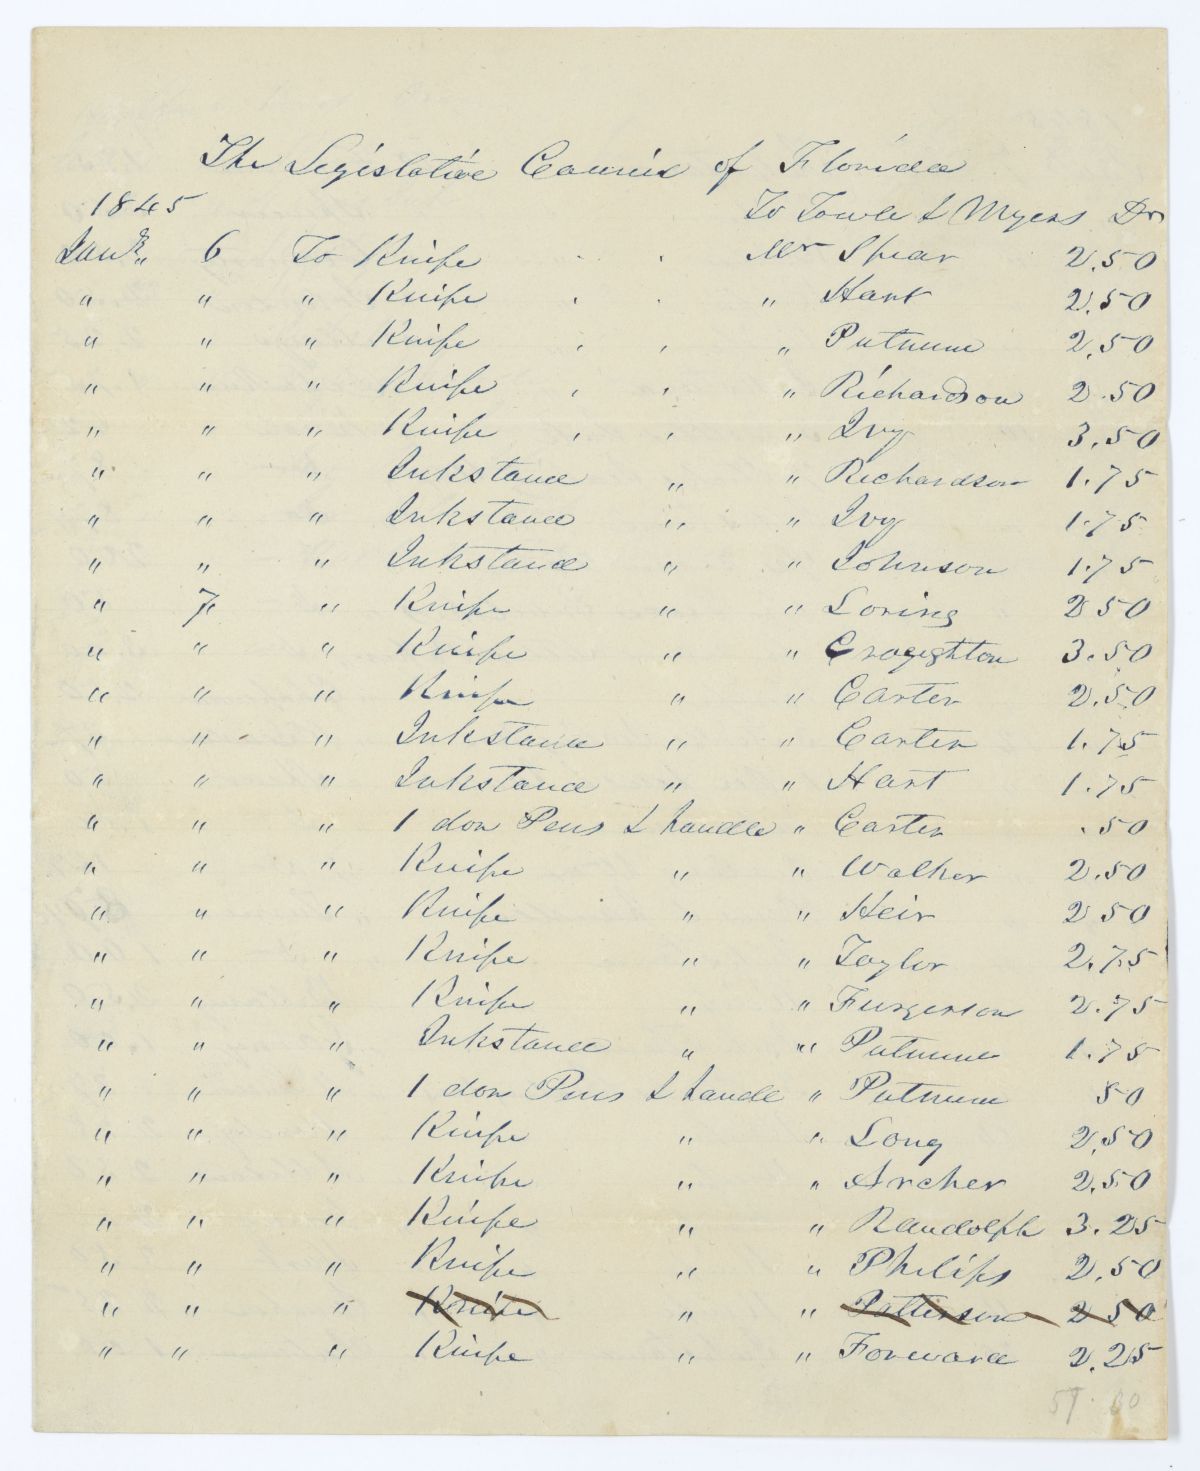 The Legislative Council of Florida
1845 To Towle & Myers Dr
Jany. 6 To Knife . . Mr Spear 2.50
" " " Knife . . " Hart 2.50
" " " Knife . . " Putnum 2.50
" " " Knife . . " Richardson 2.50
" " " Knife . . " Ivy 3.50
" " " Inkstand " " Richardson 1.75
" " " Inkstand " " Ivy 1.75
" " " Inkstand " " Johnson 1.75
" 7 " Knife " " Loring 2 50
" " " Knife " " Crogighton 3.50
" " " Knife " " Carter 2.50
" " " Inkstand " " Carter 1.75
" " " Inkstand " " Hart 1.75
" " " 1 doz Pens & handle " Carter .50
" " " Knife " " Walker 2.50
" " " Knife " " Heir 2 50
" " " Knife " " Taylor 2.75
" " " Knife " " Furgerson 2.75
" " " Inkstand " " Putnum 1.75
" " " 1 doz Pens & handle " Putnum 50
" " " Knife " " Long 2.50
" " " Knife " " Archer 2.50
" " " Knife " " Randolph 3.25
" " " Knife " " Philips 2.50
" " " Knife " " Patterson 2 50
" " " Knife " " Forward 2.25